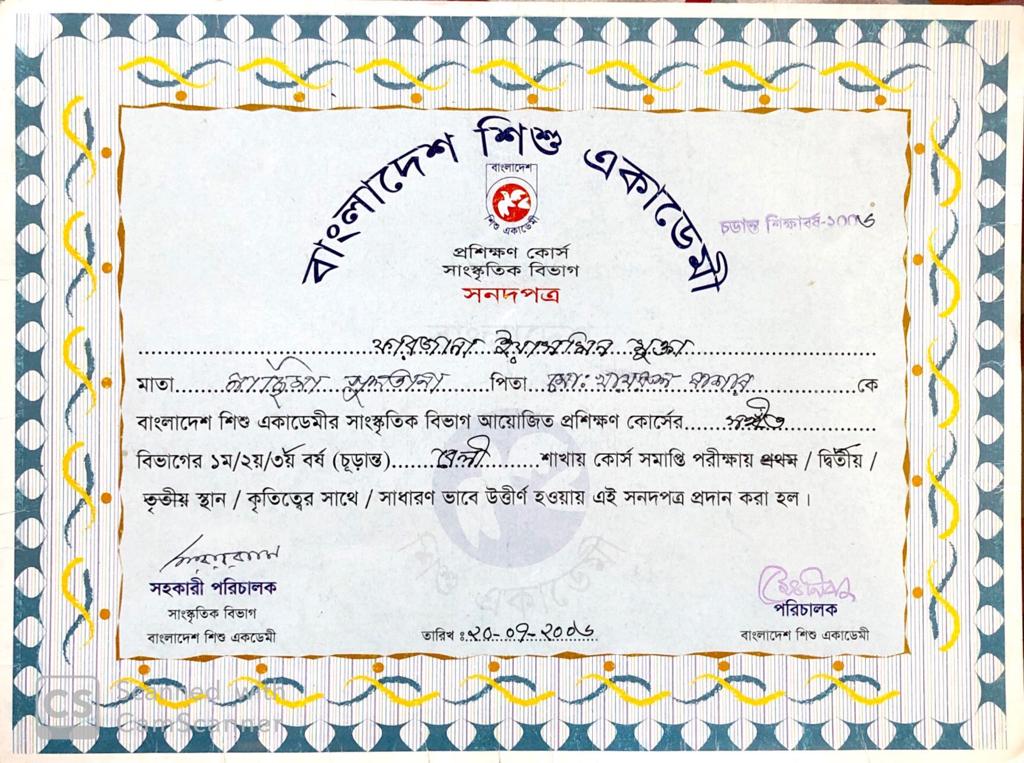 বাংলাদেশ শিশু একাডেমী
বাংলাদেশ
শিশু একাডেমী
চূড়ান্ত শিক্ষাবর্ষ-২০০৬
প্রশিক্ষণ কোর্স
সাংস্কৃতিক বিভাগ
সনদপত্র
ফারজানা ইয়াসমিন মুক্তা
মাতা সুলতানা পিতা মোঃ কে
বাংলাদেশ শিশু একাডেমীর সাংস্কৃতিক বিভাগ আয়োজিত প্রশিক্ষণ কোর্সের সঙ্গীত
বিভাগের ১ম/২য়/৩য় বর্ষ (চূড়ান্ত) বেলী শাখায় কোর্স সমাপ্তি পরীক্ষায় প্রথম / দ্বিতীয় /
তৃতীয় স্থান / কৃতিত্বের সাথে / সাধারণ ভাবে উত্তীর্ণ হওয়ায় এই সনদপত্র প্রদান করা হল।
সহকারী পরিচালক
সাংস্কৃতিক বিভাগ
বাংলাদেশ শিশু একডেমী
তারিখ ঃ ২০-০৭-২০০৬
পরিচালক
বাংলাদেশ শিশু একাডেমী
শিশু একাডেমী
CS Scanned with
CamScanner